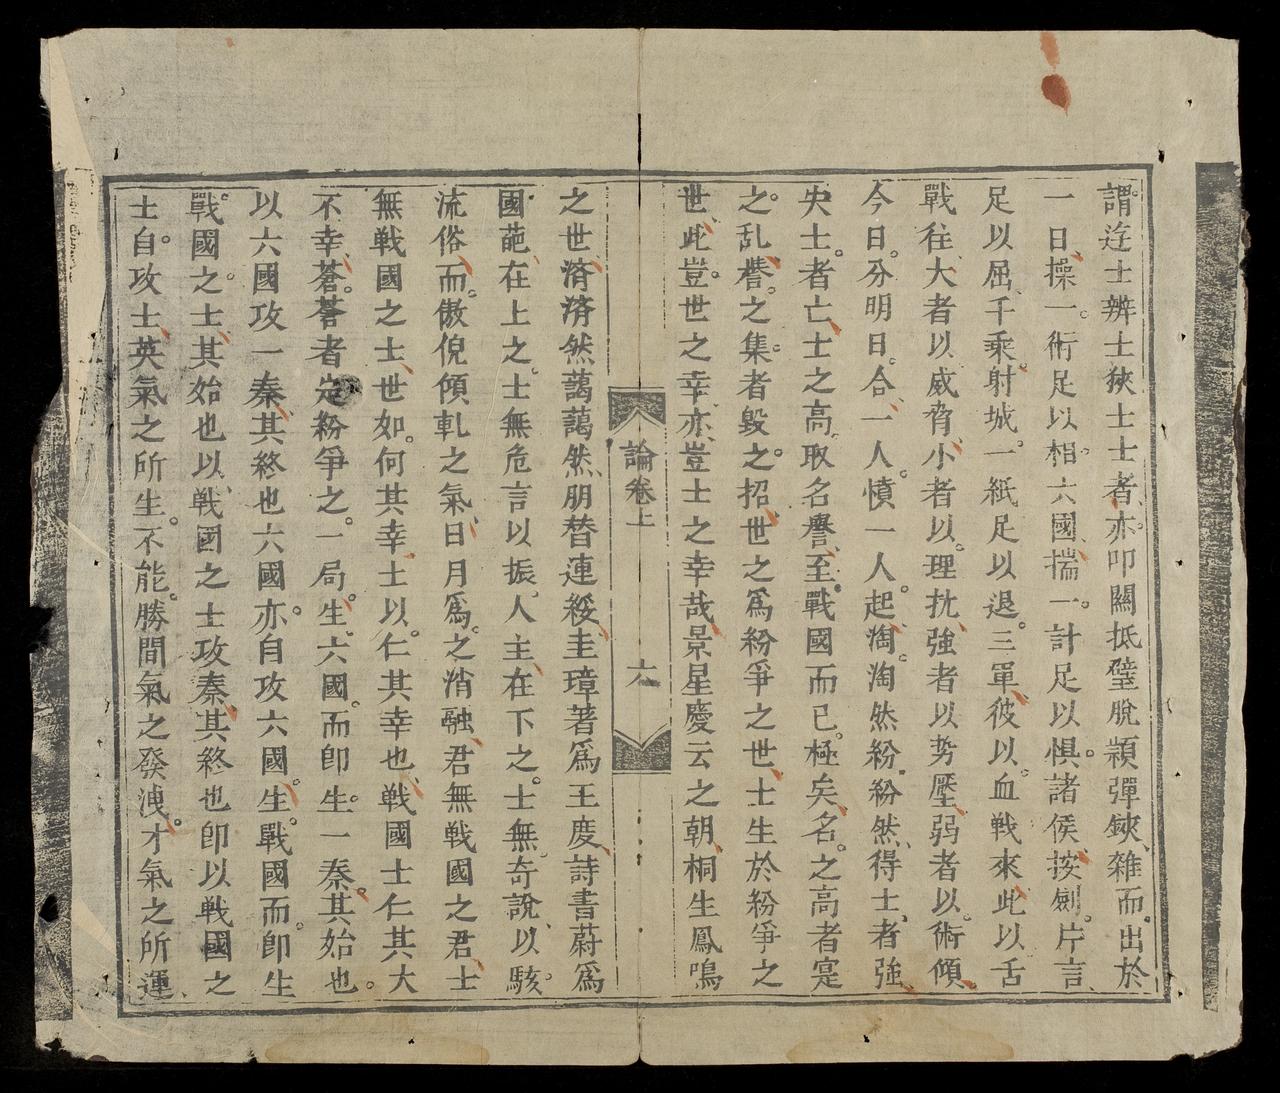 謂迂士辨士狹士士者亦叩關抵壁脫穎彈鋏雜而出於
一日操一術足以相六國揣一計足以惧諸侯按劍片言
足以屈千乘射城一紙足以退三單彼以血戦來此以舌
戰往大者以威脅小者以理抗強者以势壓弱者以術傾
今日分明日合一人憤一人起淘淘然紛紛然得士者強
失士者亡士之高取名譽至戰國而已極矣名之高者寔
之乱讋之集者毀之招世之爲紛爭之世士生於紛爭之
世此豈世之幸亦豈士之幸哉景星慶云之朝桐生鳳鳴
論卷上
六
之世済済然藹藹然朋替連綏圭璋著爲王度詩書蔚爲
國葩在上之士無危言以振人主在下之士無奇說以駭
流俗而傲倪傾軋之氣日月爲之消融君無戦國之君士
無戦國之士世如何其幸士以仁其幸也戦國士仁其大
不幸蒼蒼者定紛爭之一局生六國而卽生一秦其始也
以六國攻一秦其終也六國亦自攻六國生戰國而卽生
戰國之士其始也以戦國之士攻秦其終也卽以戦國之
士自攻士英氣之所生不能勝間氣之發洩才氣之所運